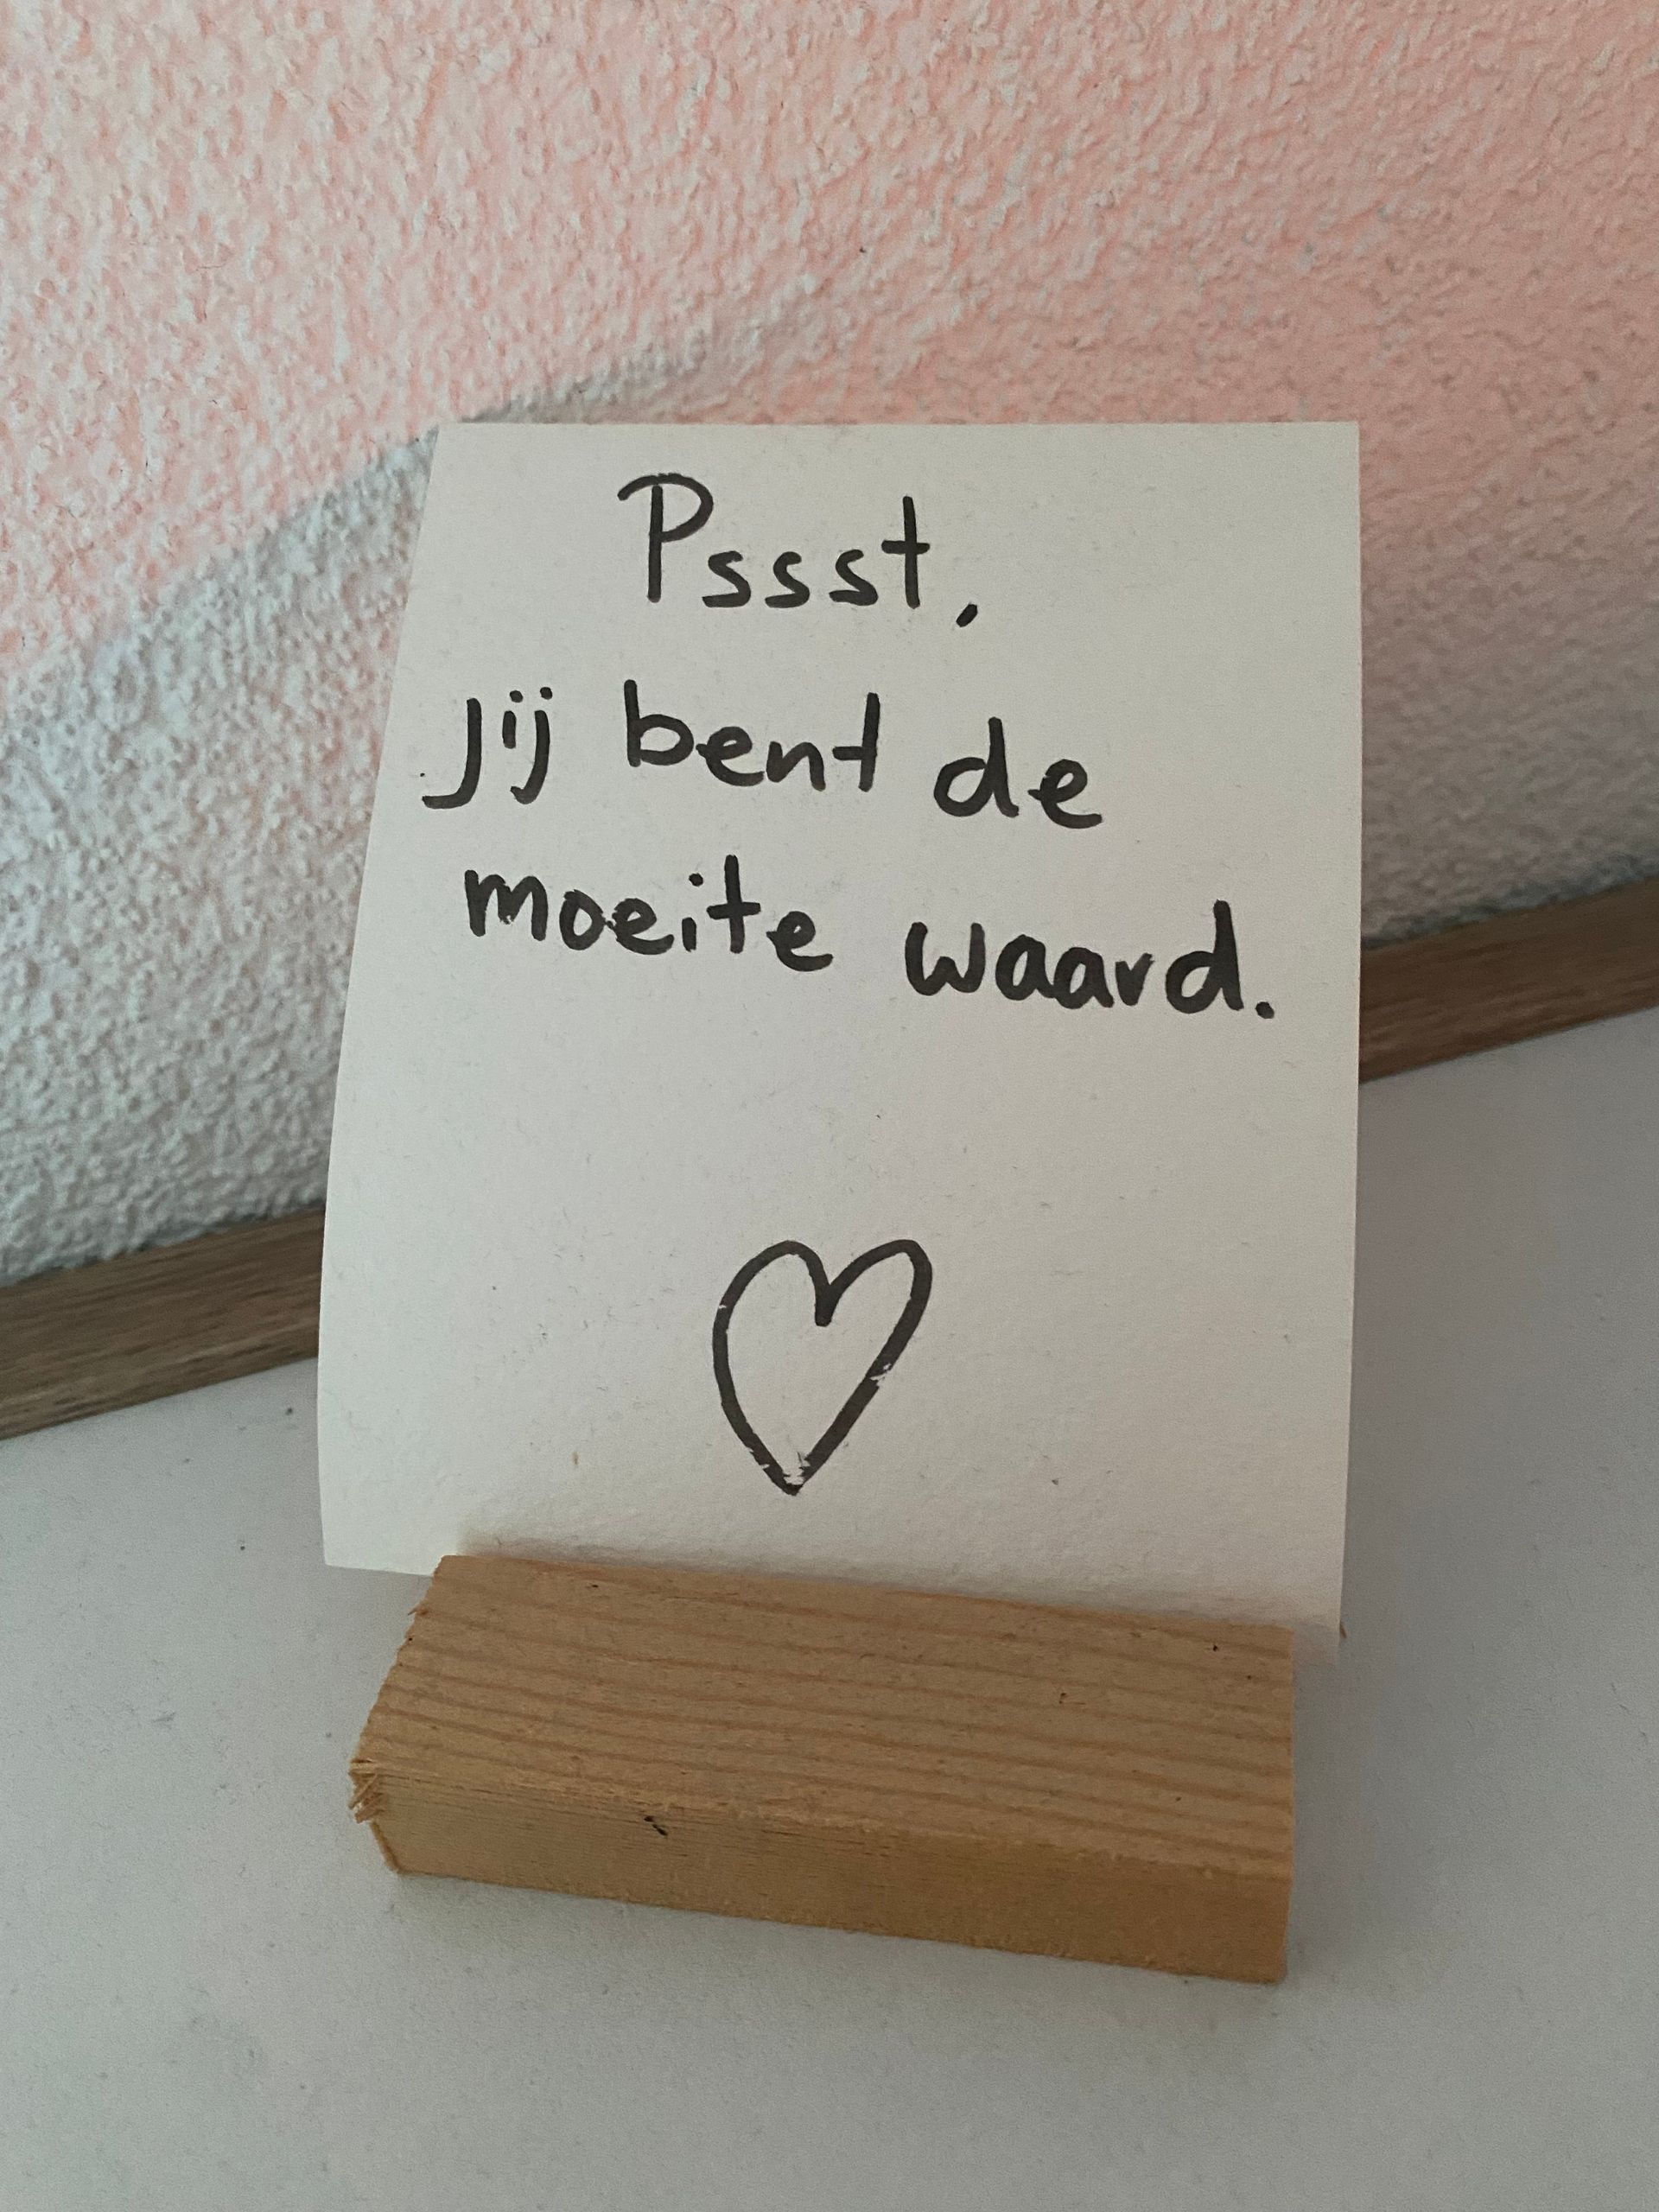 Pssst,
Jij bent de
moeite waard.